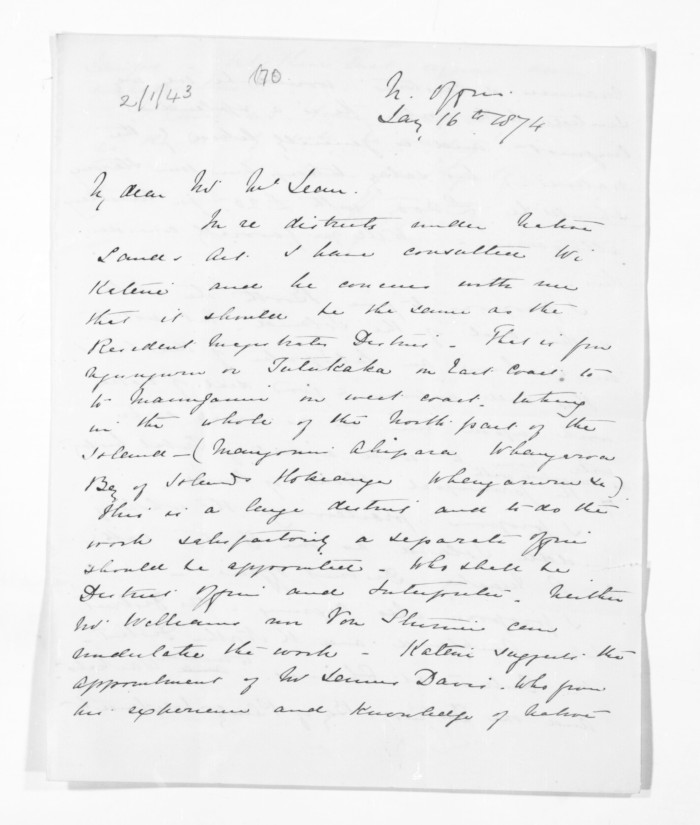 170.
2/1/43
N. Office.
Jany 16th 1874
My dear Mr McLean.
In re districts under Native
Lands Act. I have consulted Wi
Katene and he concurs with me
that it should be the same as the
Resident Magistrates District - That is from
Ngunguru or Tutukaka on East Coast to
to Maunganui on west coast. taking
in the whole of the North part of the
Island - (Mangonui Ahipara Whangaroa
Bay of Islands Hokianga Whangaruru &c)
This is a large district and to do the
work satisfactorily a separate officer
should be appointed - who shall be
District Officer and Interpreter. Neither
Mr Williams nor Von Sturmer can
undertake the work - Katene suggests the
appointment of Mr Davis. who from
his experience and knowledge of Native